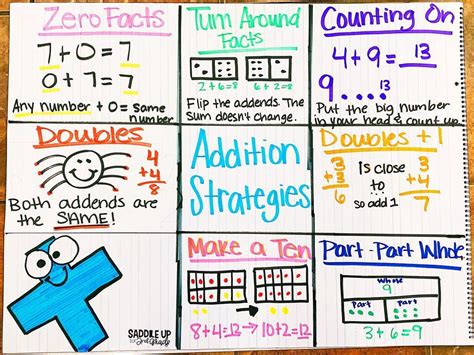 Zero Facts
7+0=7
0+7=7
Any number + 0 = Same
number
Turn Around
Facts
2+6=8
6+2=8
Flip the addends. The
Sum doesn't change.
Counting On
4+9= 13
9....13
Put the big number
in your head & count up.
Doubles
4
+4
8
Both addends are
the SAME!
Addition
Strategies
Doubles +1
3
+3
6
is close
to
so add 1
3
+4
7
Make a Ten
8+4=12 → 10+2=12
Part-Part Whole
Whole
9
Part
Part
3+6=9
SADDLE UP
for 2nd Grade